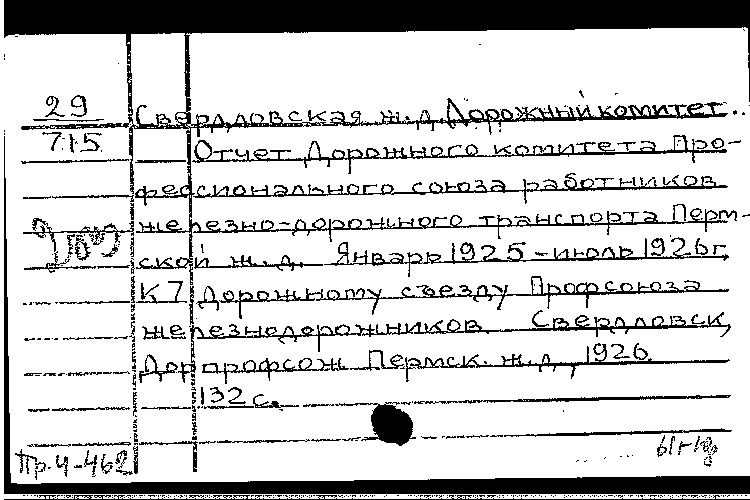 29
715
Свердловская ж.д. Дорожный комитет..
Отчет Дорожного комитета Про-
фессионального союза работников
железно-дорожного транспорта Перм-
ской ж.д. Январь 1925-июль 1926г.
К 7 Дорожному съезду Профсоюза
железнодорожников. Свердловск,
Дорпрофсож Пермск. ж.д., 1926.
132 с.
Пр.4-462